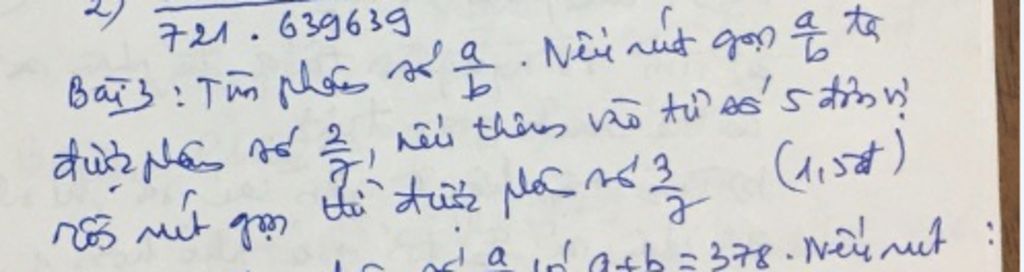 2)
721 . 639639
Bài 3 : Tìm phân số a/b . Nếu rút gọn a/b ta
được phân số 2/7, nếu thêm vào tử số 5 đơn vị
rồi rút gọn thì được phân số 3/7 (1,5đ)
số a/b có a+b = 378 . Nếu rút :